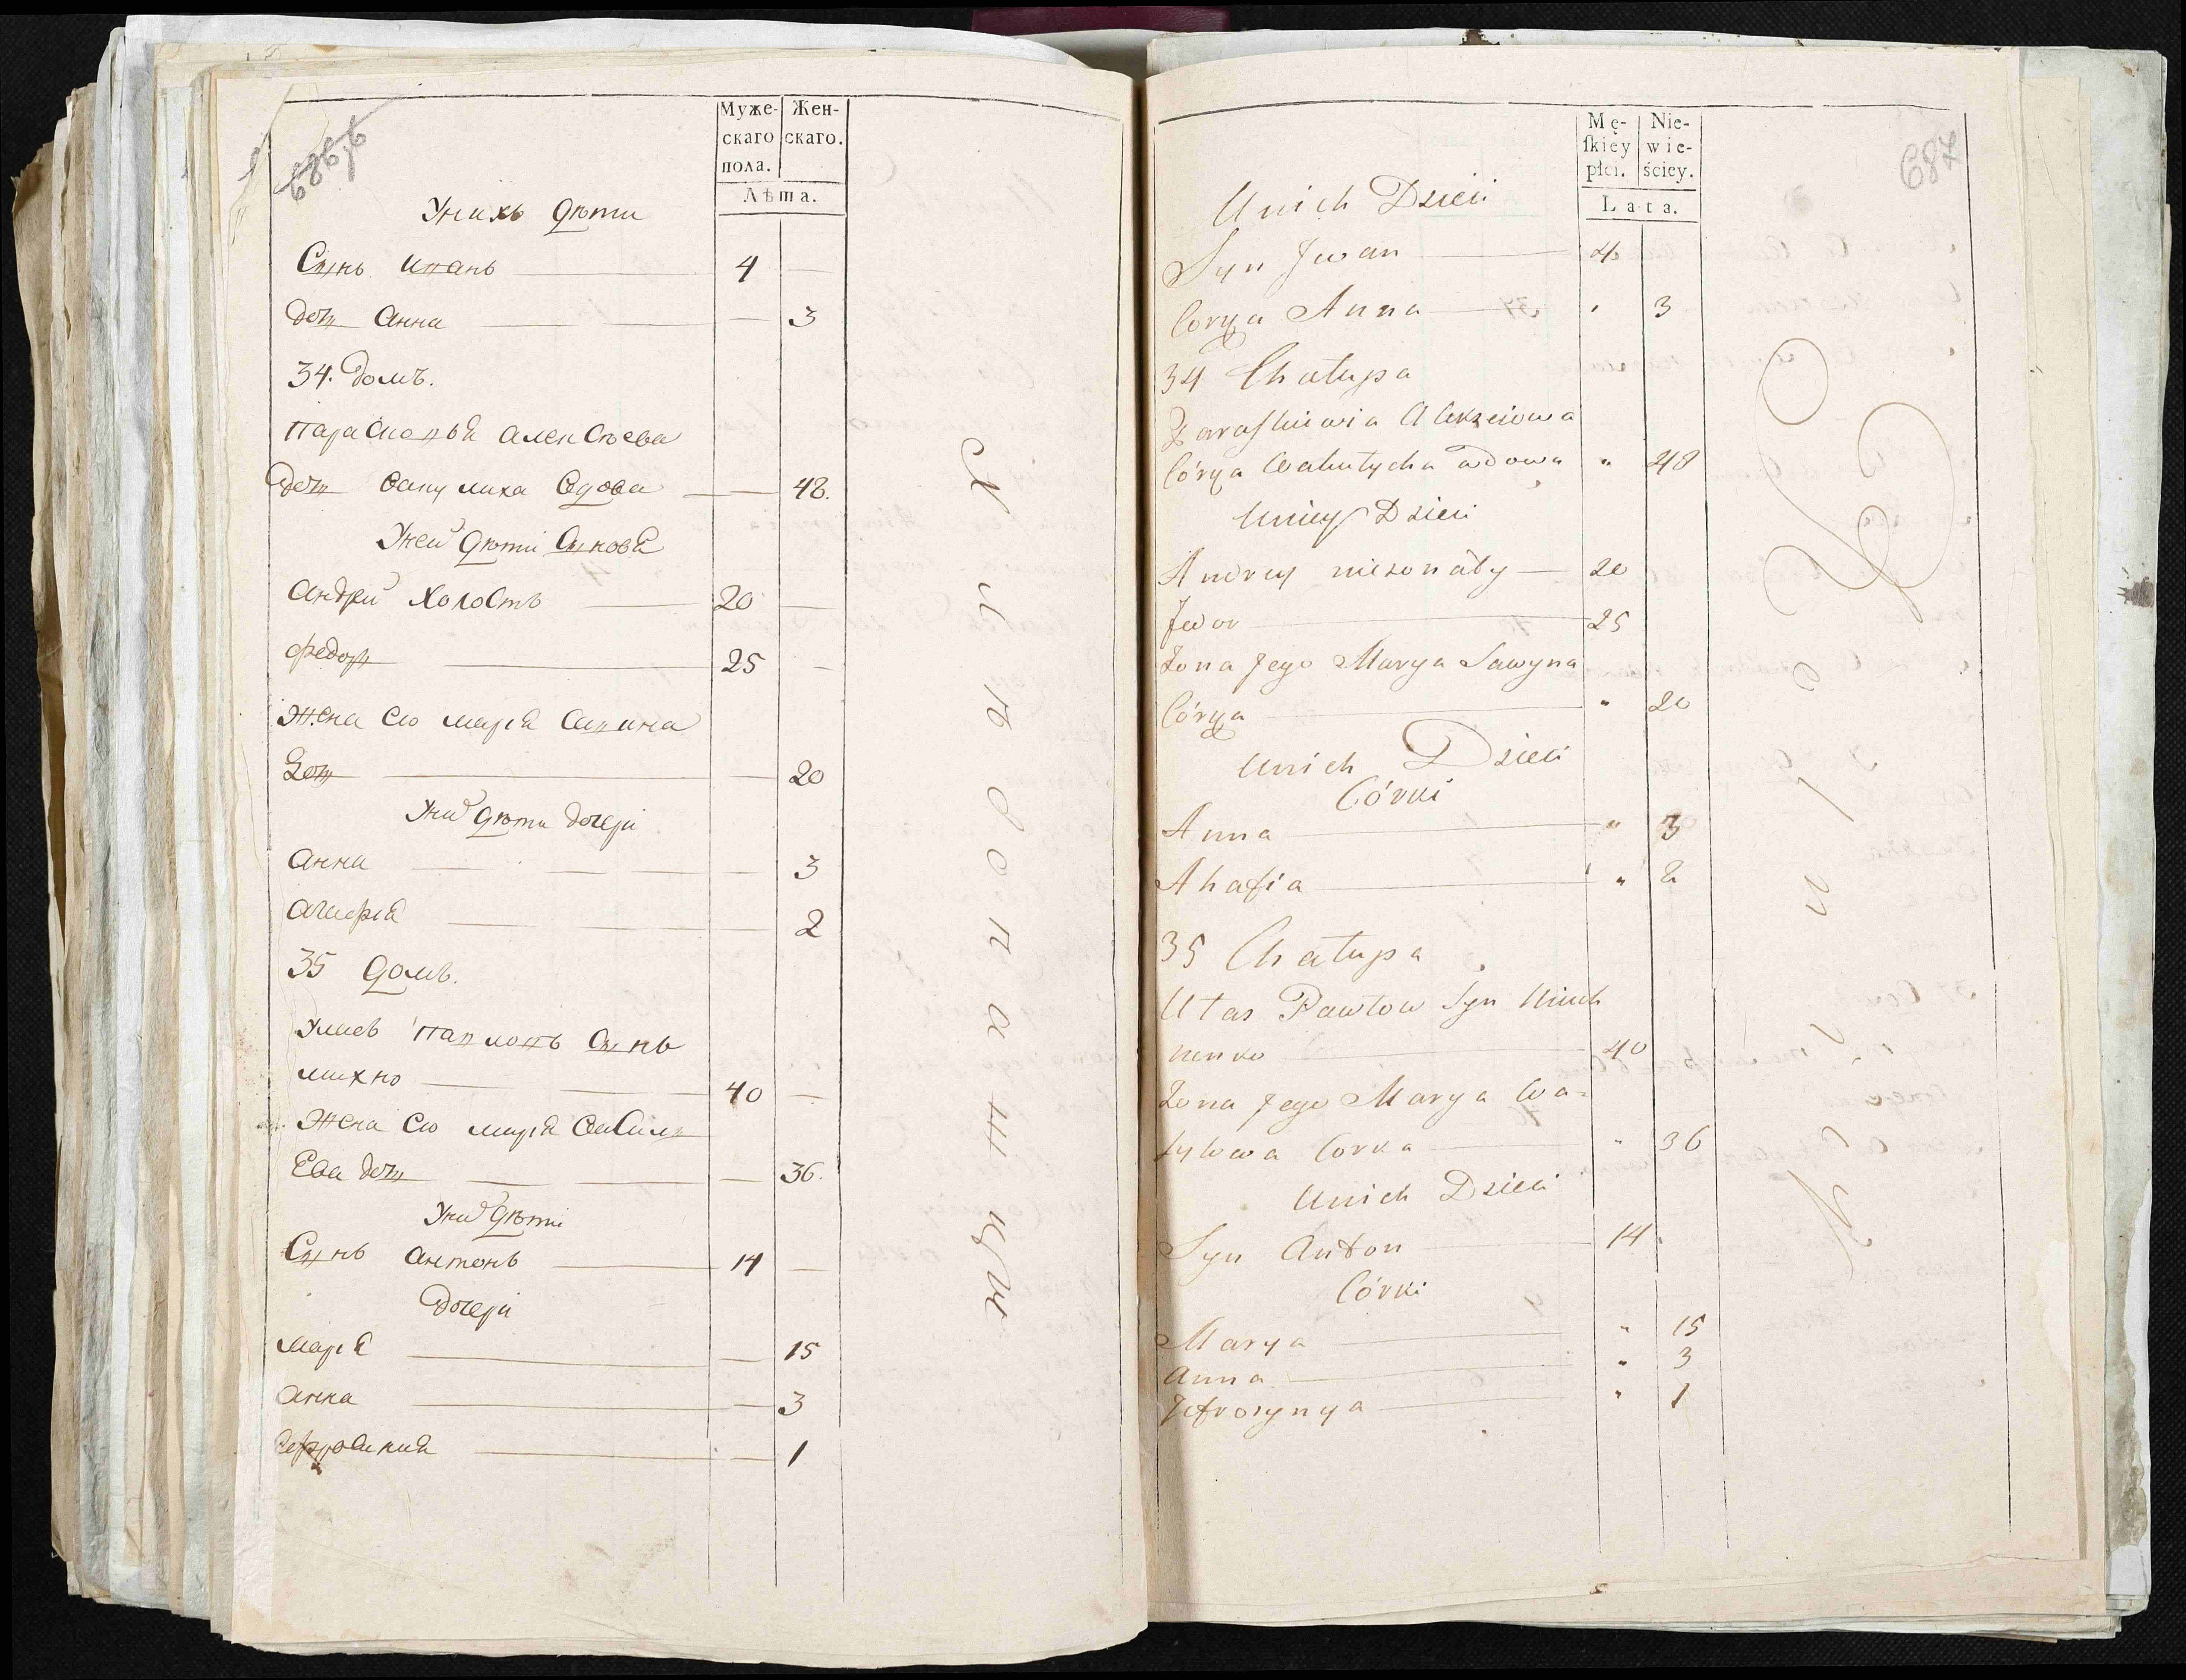 686
Муже-
скаго
пола.
Жен-
скаго.
Лѣта.
У нихъ дѣти
Сынъ Иванъ 4
дочь Анна 3
34. домъ.
Парасковья Алексѣева
дочь вакулиха вдова 48.
У ней дѣти Сыновя
Андрей Холостъ 20
Федоръ 25
Жена его Марія Савина
Дочь 20
У ни дѣти дочери
Анна 3
Агафія 2
35 домъ.
Павловъ Сынъ
михно 40
Жена его Марія Васил
Ева дочь 36.
У ни дѣти
Сынъ Антонъ 14
дочери
Марія 15
Анна 3
1
687
Mę-
ſkiey
płci.
Nie-
wie-
ściey.
Lata.
Unich Dzieci
Syn Jwan 4
Corka Anna " 3
34 Chałupa
Paraſkiewia Alekseiowa
Córka Wakulycha wdowa " 48
Uniey Dzieci
Andrey niezonaty 20
Fedor 25
Zona Jego Marya Sawyna
Córka " 20
Unich Dzieci
Córki
Anna " 3
Ahafia " 2
35 Chałupa
Pawłow Syn
nenko 40
Zona Jego Marya Wa=
sylewa Corka " 36
Unich Dzieci
Syn Anton 14
Córki
Marya " 15
Anna " 3
Jefrosynya " 1